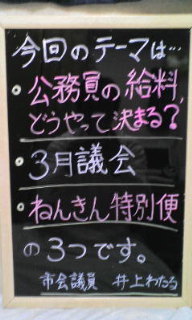 今回のテーマは…
・公務員の給料、
どうやって決まる?
・3月議会
・ねんきん特別便
の3つです。
市会議員 井上わたる